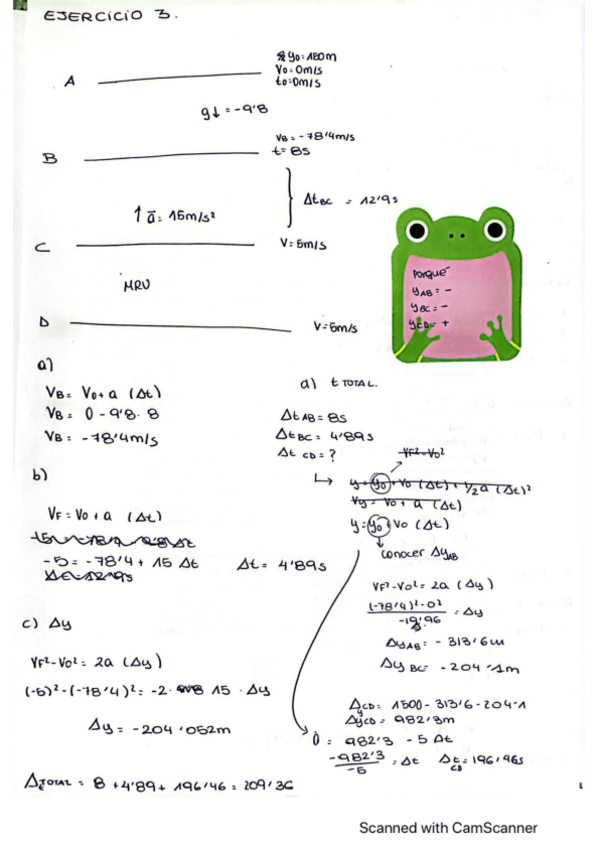 EJERCICIO 3.
y₀= 1500m
V₀= 0m/s
t₀= 0m/s
A
g↓ = -9'8
VB= -78'4m/s
t= 8s
B
ΔtBC = 12'9s
↑ a̅: 15m/s²
C
V= 5m/s
MRU
D
V= 5m/s
Porque
yAB= -
yBC= -
yCD= +
a)
VB= V₀+ a (Δt)
VB= 0 - 9'8. 8
VB= -78'4m/s
b)
VF= V₀ + a (Δt)
-5= -78'4 + 15 Δt
Δt= 4'89s
c) Δy
VF²-V₀²= 2a (Δy)
(-5)²-(-78'4)²= -2. 15 . Δy
Δy= -204'052m
d) t TOTAL.
ΔtAB= 8s
ΔtBC= 4'89s
Δt CD= ?
VF²-V₀²
y= y₀+ V₀ (Δt) + 1/2 a (Δt)²
Vy= V₀ + a (Δt)
y= y₀ + V₀ (Δt)
conocer ΔyAB
VF²-V₀²= 2a (Δy)
(-78'4)²-0² / -19'96 = Δy
ΔyAB= - 313'6m
Δy BC= - 204'1m
ΔyCD= 1500 - 313'6 - 204'1
ΔyCD= 982'3m
0 = 982'3 - 5 Δt
-982'3 / -5 = Δt
ΔtCD= 196'46s
Δt TOTAL = 8 + 4'89 + 196'46 = 209'36
Scanned with CamScanner